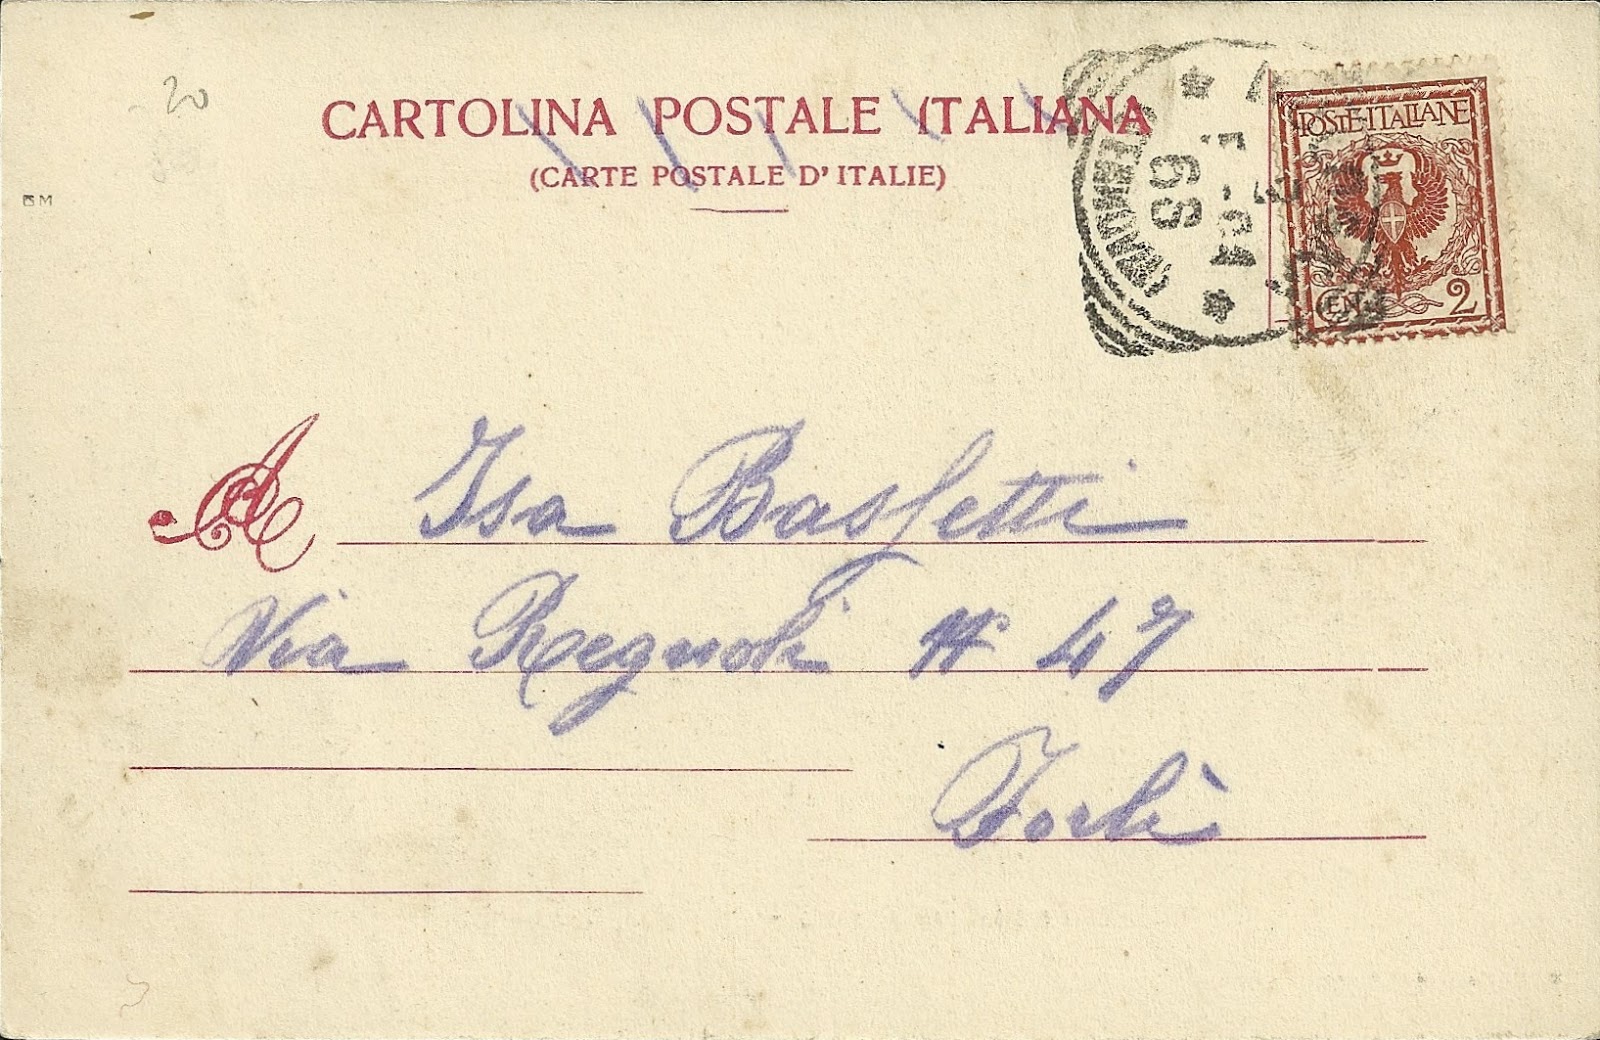 20
CARTOLINA POSTALE ITALIANA
(CARTE POSTALE D'ITALIE)
BM
POSTE·ITALIANE
CEN. 2
A Isa Bassetti
Via Regnoli N 47
Forlì